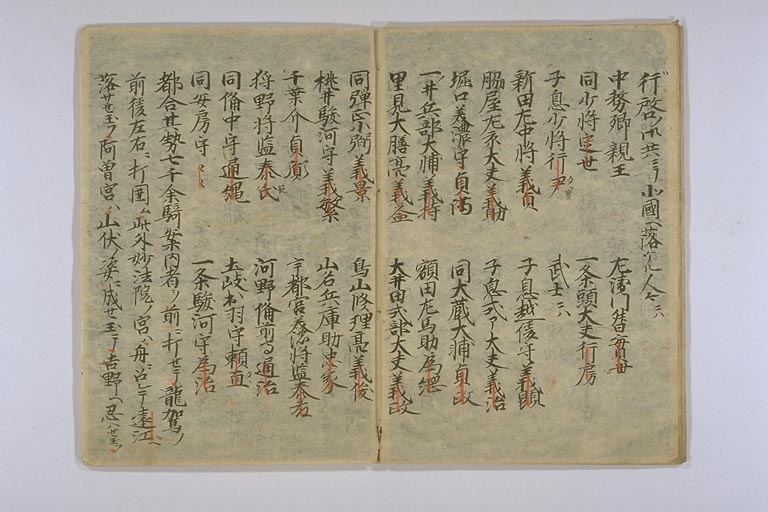 行啓ノ御共ニテ北國ヘ落ケル人々ニハ
中務卿親王 左衛門督實世
同少将定世 一条頭大夫行房
子息少将行尹 武士ニハ
新田左中将義貞 子息越後守義顕
脇屋右衛門大夫義助 子息式ア大夫義治
堀口美濃守貞満 同大蔵大輔貞政
一井兵部大輔義時 額田左馬助為綱
里見大膳亮義益 大井田式部大夫義政
同弾正少弼義景 鳥山修理亮義俊
桃井駿河守義繁 山名兵庫助忠家
千葉介貞胤 宇都宮 将監泰
狩野将監泰氏 河野備前守通治
同備中守通縄 土岐出羽守頼直
同安房守 一条駿河守為治
都合其勢七千余騎案内者ノ前ニ打セテ龍駕ノ
前後左右ニ打囲ム此外妙法院ノ宮ハ舟ニ召テ遠江ヘ
落サセ玉フ阿曽宮ハ山伏ノ姿ニ成セ玉テ吉野ヘ忍ハセ玉フ